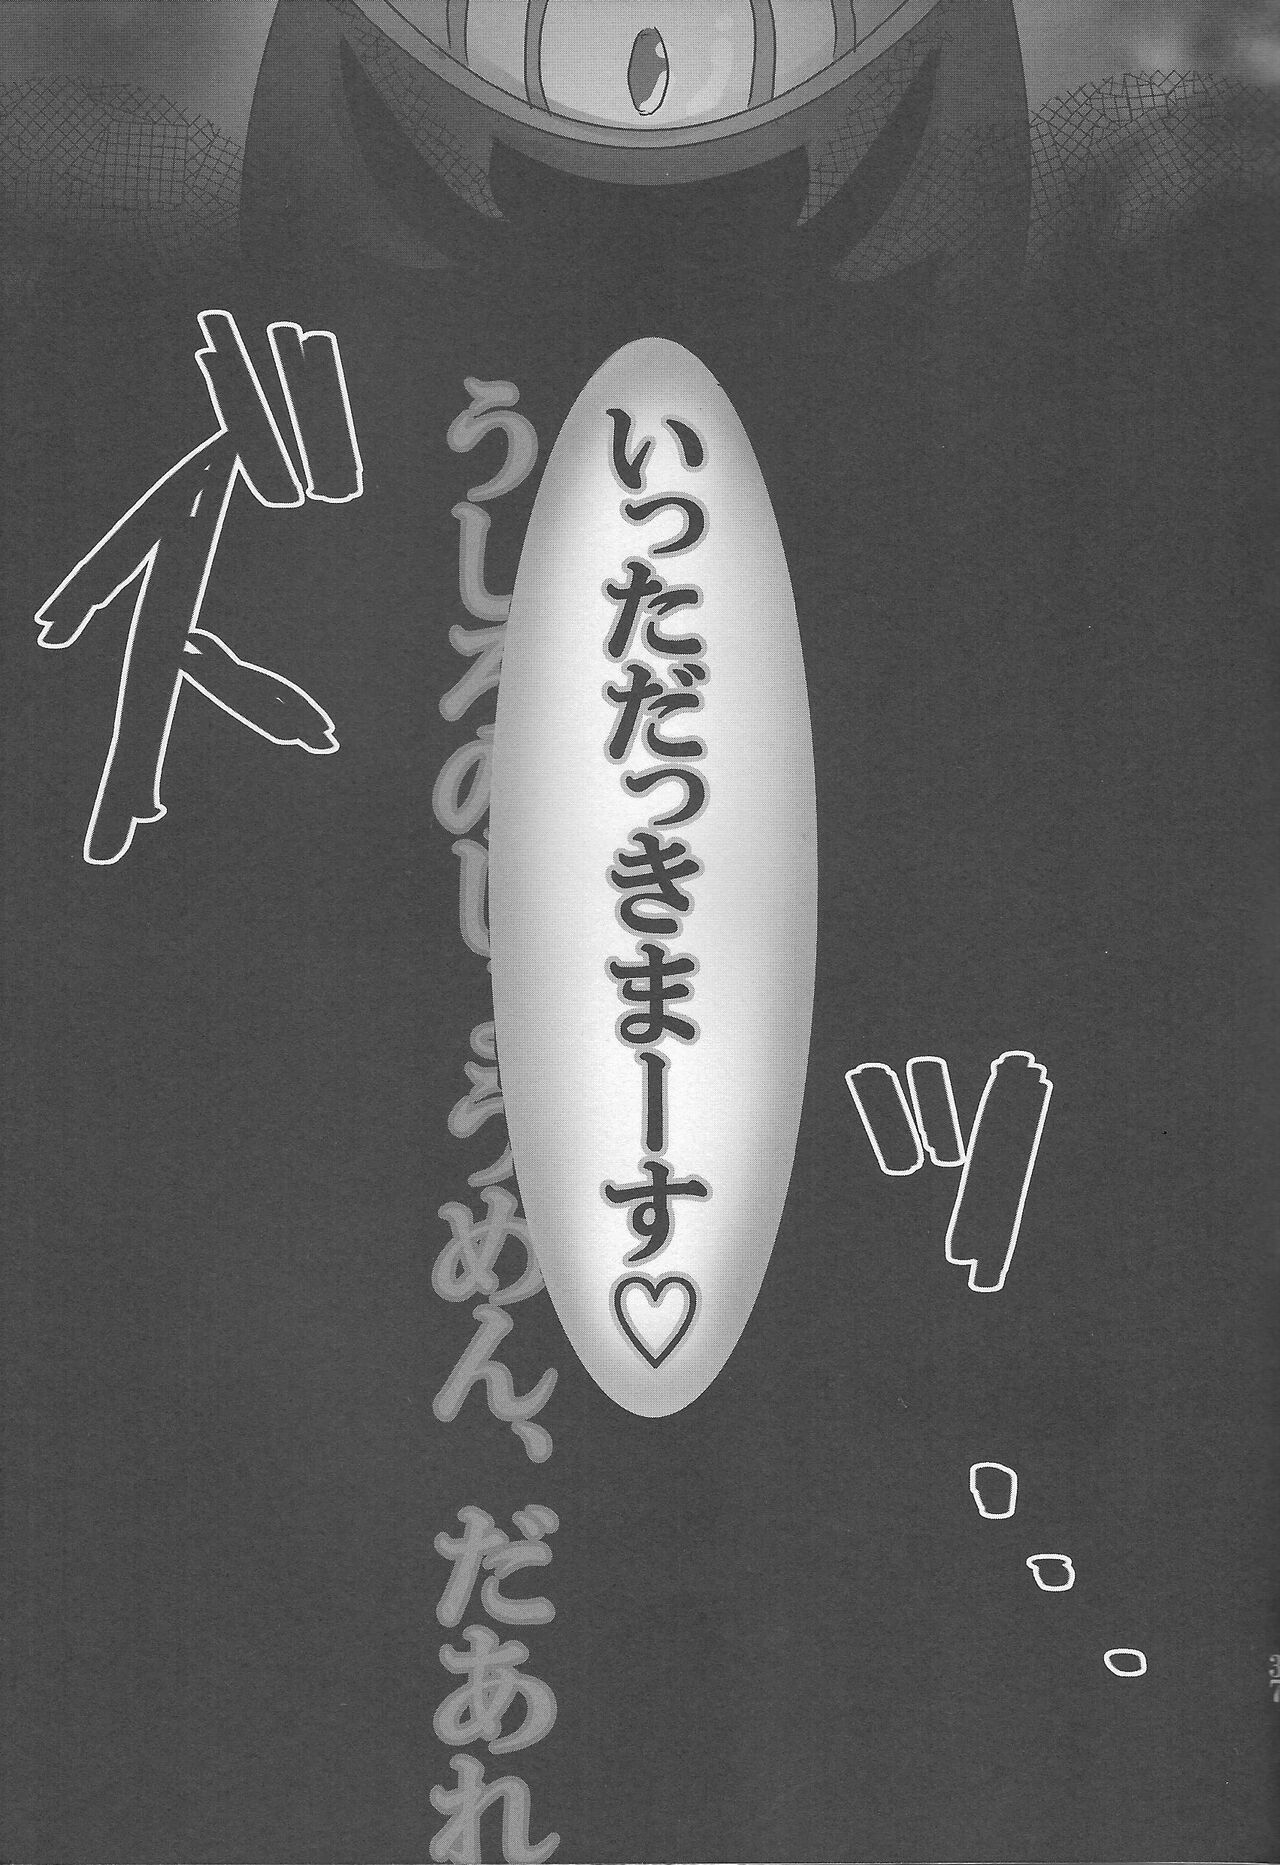 いっただっきまーす♡
うしろのしょうめん、だあれ
ズ
ッ
37